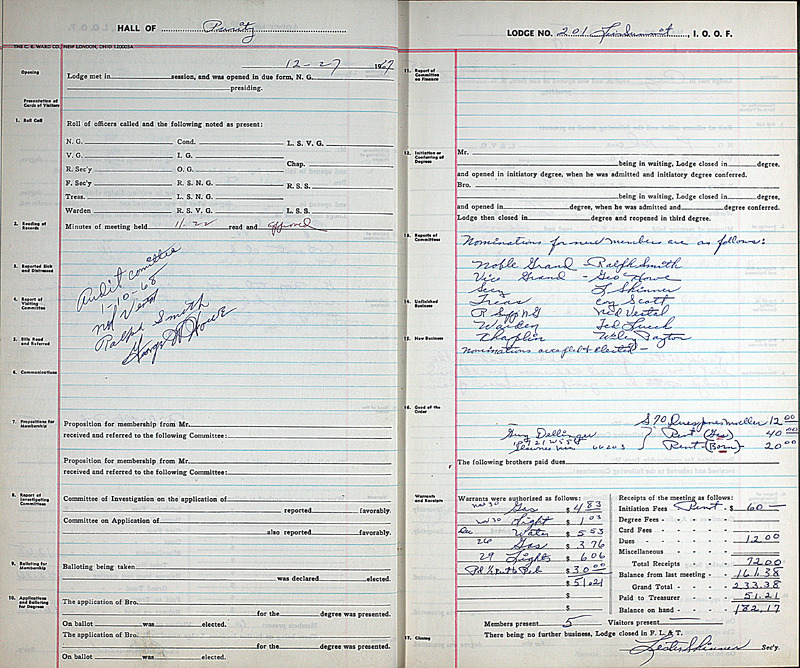 HALL OF Purity
THE C. E. WARD CO., NEW LONDON, OHIO
12-27 1967
Opening
Lodge met in session, and was opened in due form, N. G.
presiding.
Presentation of Cards of Visitors
1. Roll Call
Roll of officers called and the following noted as present:
N. G. Cond. L. S. V. G.
V. G. I. G. Chap.
R. Sec'y O. G.
F. Sec'y R. S. N. G. R. S. S.
Treas. L. S. N. G.
Warden R. S. V. G. L. S. S.
2. Reading of Records
Minutes of meeting held 11-22 read and
3. Reported Sick and Distressed
Audit committee
1-10-68
4. Report of Visiting Committee
Ned Vestal
Ralph Smith
George W Howe
5. Bills Read and Referred
6. Communications
7. Propositions for Membership
Proposition for membership from Mr.
received and referred to the following Committee:
Proposition for membership from Mr.
received and referred to the following Committee:
8. Report of Investigating Committee
Committee of Investigation on the application of
reported favorably.
Committee on Application of
also reported favorably.
9. Balloting for Membership
Balloting being taken
was declared elected.
10. Applications and Balloting for Degrees
The application of Bro.
for the degree was presented.
On ballot was elected.
The application of Bro.
for the degree was presented.
On ballot was elected.
LODGE NO. 201 , I. O. O. F.
11. Report of Committee on Finance
12. Initiation or Conferring of Degrees
Mr.
being in waiting, Lodge closed in degree,
and opened in initiatory degree, when he was admitted and initiatory degree conferred.
Bro.
being in waiting, Lodge closed in degree,
and opened in degree, when he was admitted and degree conferred.
Lodge then closed in degree and reopened in third degree.
13. Reports of Committees
Nominations for new member are as follows:
Noble Grand - Ralph Smith
Vice Grand - Geo Howe
Secy L Skinner
14. Unfinished Business
Treas Coy Scott
R Supp NG Ned Vestal
Warden Ted
15. New Business
Chaplin
Nominations accepted & elected -
16. Good of the Order
$70 Dues 12 00
Guy Dellinger Rent (Geo) 40 00
66203 Rent (Born) 20 00
The following brothers paid dues
Warrants and Receipts
Warrants were authorized as follows:
Nov 30 Gas $ 4 83
Nov 30 Light $ 1 03
Dec Water $ 5 53
26 Gas $ 3 76
29 Lights $ 6 06
$ 30 00
$ 51.21
$
$
Receipts of the meeting as follows:
Initiation Fees Rent $ 60 —
Degree Fees
Card Fees
Dues 12 00
Miscellaneous
Total Receipts 72 00
Balance from last meeting 161.38
Grand Total 233.38
Paid to Treasurer 51.21
Balance on hand 182.17
Members present 5 Visitors present
17. Closing
There being no further business, Lodge closed in F. L. & T.
Leslie Skinner Sec'y.